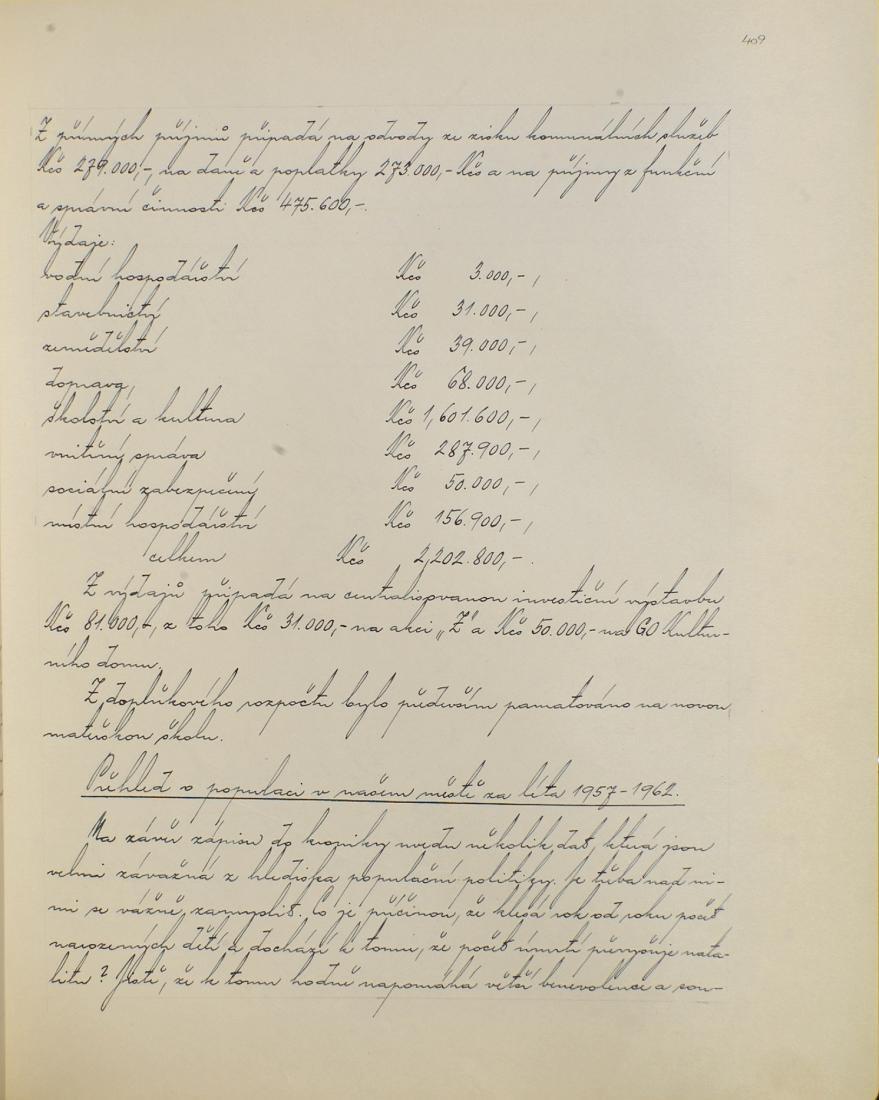 409
Z přímých příjmů připadá na odvody ze zisku komunálních služeb
Kčs 279.000,-, na daně a poplatky 273.000,- Kčs a na příjmy z funkční
a správní činnosti Kčs 475.600,-.
Výdaje:
vodní hospodářství Kčs 3.000,- ,
stavebnictví Kčs 31.000,- ,
zemědělství Kčs 39.000,- ,
doprava, Kčs 68.000,- ,
školství a kultura Kčs 1,601.600,- ,
vnitřní správa Kčs 287.900,- ,
sociální zabezpečený Kčs 50.000,- ,
místní hospodářství Kčs 156.900,- ,
celkem Kčs 2,202.800,- .
Z výdajů připadá na centralisovanou investiční výstavbu
Kčs 81.000,-, z toho Kčs 31.000,- na akci „Z" a Kčs 50.000,- na GO Kultur-
ního domu.
Z doplňkového rozpočtu bylo především pamatováno na novou
mateřskou školu.
Přehled o populaci v našem městě za léta 1957-1962.
Na závěr zápisu do kroniky uvedu několik dat, která jsou
velmi závažná z hlediska populační politiky. Je třeba nad ni-
mi se vážně zamyslit. Co je příčinou, že klesá rok od roku počet
narozených dětí a dochází k tomu, že počet úmrtí převyšuje nata-
litu? Jistě, že k tomu hodně napomáhá větší benevolence a sou-